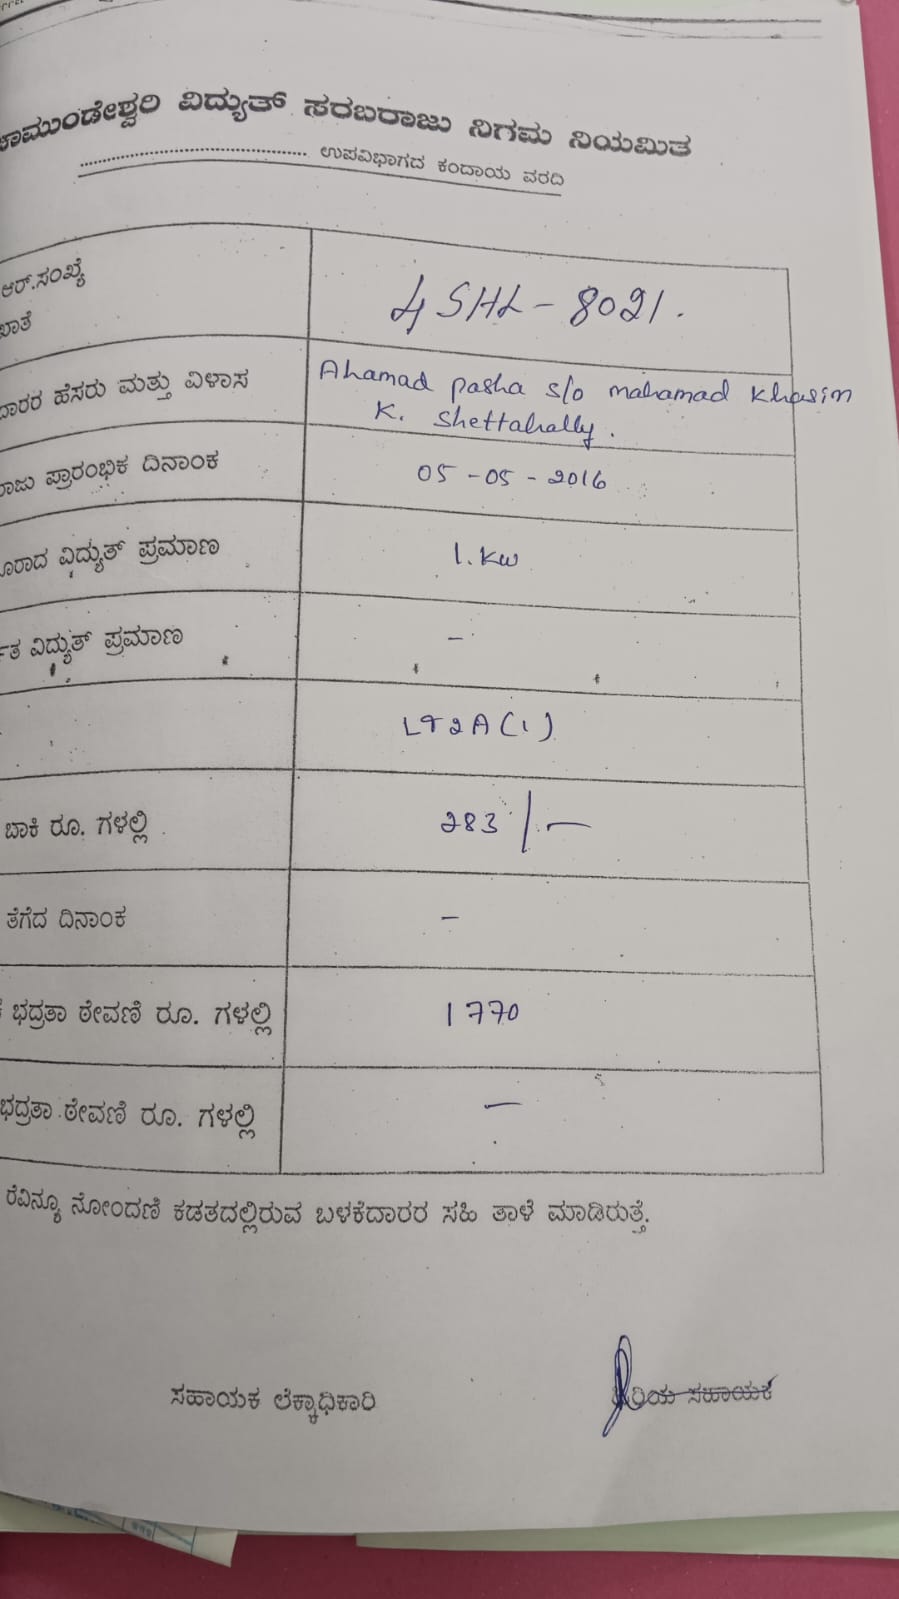 ಚಾಮುಂಡೇಶ್ವರಿ ವಿದ್ಯುತ್ ಸರಬರಾಜು ನಿಗಮ ನಿಯಮಿತ
............................................ ಉಪವಿಭಾಗದ ಕಂದಾಯ ವರದಿ
ಆರ್.ಸಂಖ್ಯೆ
ಖಾತೆ
4 SHL - 8021.
ದಾರರ ಹೆಸರು ಮತ್ತು ವಿಳಾಸ
Ahamad pasha s/o mahamad khasim
K. Shettahally.
ರಾಜು ಪ್ರಾರಂಭಿಕ ದಿನಾಂಕ
05-05-2016
ೂರಾದ ವಿದ್ಯುತ್ ಪ್ರಮಾಣ
1.kw
ರ್ತ ವಿದ್ಯುತ್ ಪ್ರಮಾಣ
-
LT2A(1)
ಬಾಕಿ ರೂ. ಗಳಲ್ಲಿ
283/-
ತೆಗೆದ ದಿನಾಂಕ
-
ಭದ್ರತಾ ಠೇವಣಿ ರೂ. ಗಳಲ್ಲಿ
1770
ಭದ್ರತಾ ಠೇವಣಿ ರೂ. ಗಳಲ್ಲಿ
-
ರೆವಿನ್ಯೂ ನೋಂದಣಿ ಕಡತದಲ್ಲಿರುವ ಬಳಕೆದಾರರ ಸಹಿ ತಾಳೆ ಮಾಡಿರುತ್ತೆ.
ಸಹಾಯಕ ಲೆಕ್ಕಾಧಿಕಾರಿ
ಹಿರಿಯ ಸಹಾಯಕ